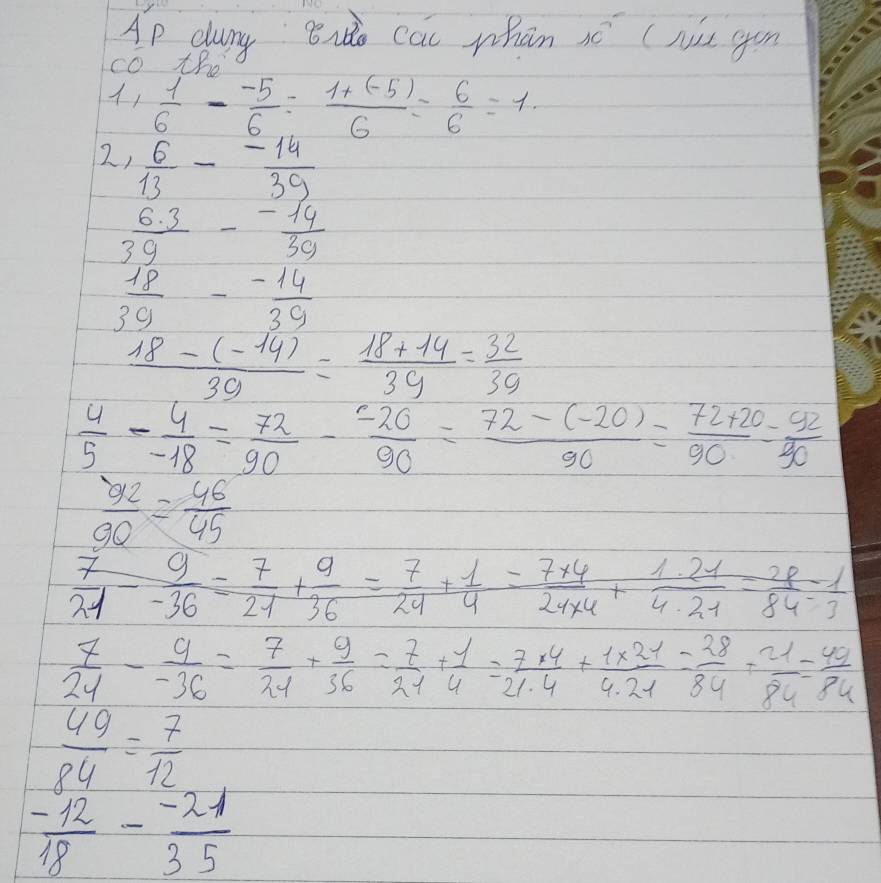 Áp dụng: Trừ các phân số (rút gọn
có thể
1, 1/6 - -5/6 = 1+(-5)/6 = 6/6 = 1.
2, 6/13 - -14/39
6.3/39 - -14/39
18/39 - -14/39
18-(-14)/39 = 18+14/39 = 32/39
4/5 - 4/-18 = 72/90 - -20/90 = 72-(-20)/90 = 72+20/90 = 92/90
92/90 = 46/45
7/21 - 9/-36 = 7/21 + 9/36 = 7/21 + 1/4 = 7×4/21×4 + 1.21/4.21 = 28/84 = 1/3
7/21 - 9/-36 = 7/21 + 9/36 = 7/21 + 1/4 = 7×4/21.4 + 1×21/4.21 = 28/84 + 21/84 = 49/84
49/84 = 7/12
-12/18 - -21/35